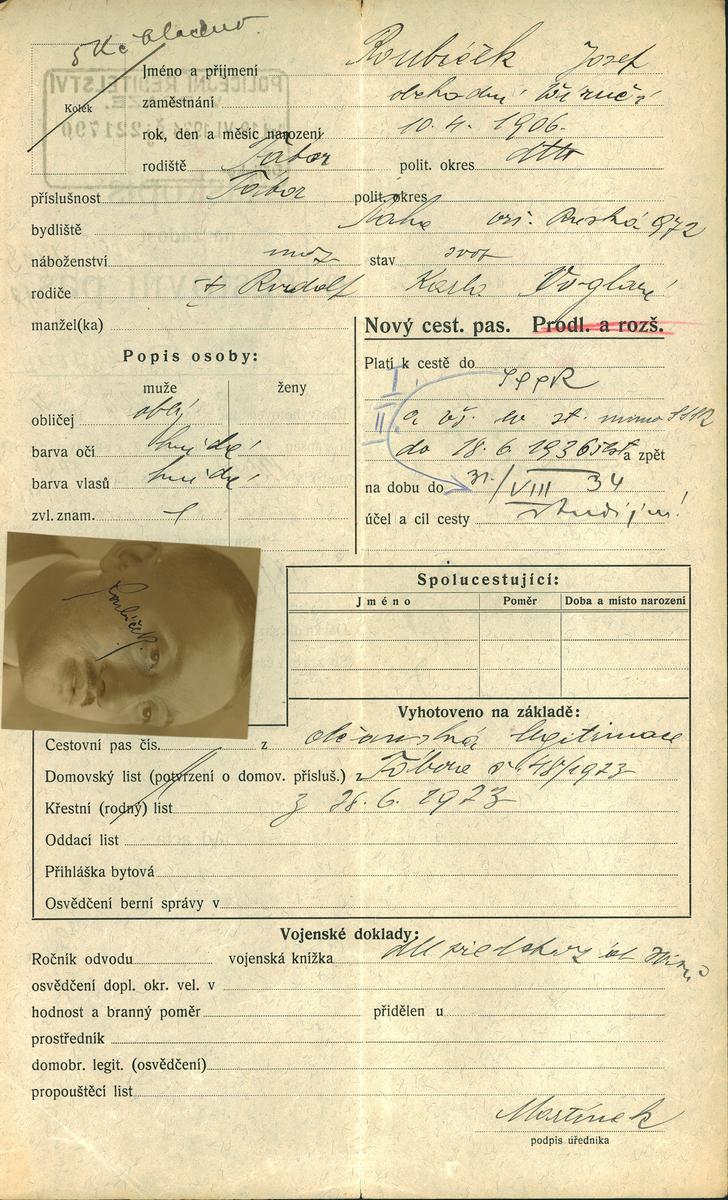 5 Kč
Kolek
Jméno a příjmení Roubíček Josef
zaměstnání obchodní
rok, den a měsíc narození 10. 4. 1906.
rodiště Tábor polit. okres dtto
příslušnost Tábor polit. okres
bydliště Praha 972
náboženství moz stav svob
rodiče † Rudolf Karla
manžel(ka)
Nový cest. pas. Prodl. a rozš.
Popis osoby:
muže ženy
obličej oblý
barva očí hnědé
barva vlasů hnědé
zvl. znam.
Platí k cestě do SSSR
I.
II. a vš. ev. st. mimo SSSR
do 18. 6. 1936 a zpět
na dobu do 31./VIII 34
účel a cíl cesty studijní
Roubíček
Spolucestující:
Jméno Poměr Doba a místo narození
Vyhotoveno na základě:
Cestovní pas čís. z občanská legitimace
Domovský list (potvrzení o domov. přísluš.) z Tábora 48/1923
Křestní (rodný) list z 28. 6. 1923
Oddací list
Přihláška bytová
Osvědčení berní správy v
Vojenské doklady:
Ročník odvodu vojenská knížka
osvědčení dopl. okr. vel. v
hodnost a branný poměr přidělen u
prostředník
domobr. legit. (osvědčení)
propouštěcí list
Martínek
podpis úředníka